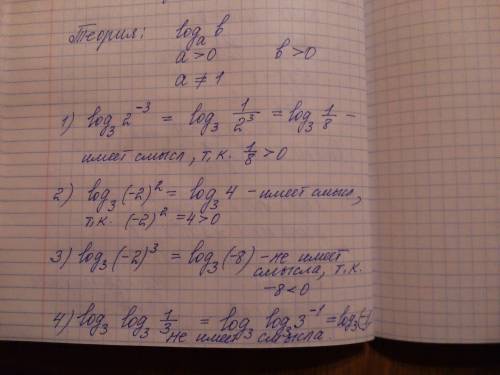 Теория: logₐ b
a > 0 b > 0
a ≠ 1
1) log₃ 2⁻³ = log₃ 1/2³ = log₃ 1/8 –
имеет смысл, т.к. 1/8 > 0
2) log₃ (-2)² = log₃ 4 – имеет смысл,
т.к. (-2)² = 4 > 0
3) log₃ (-2)³ = log₃ (-8) – не имеет
смысла, т.к.
-8 < 0
4) log₃ log₃ 1/3 = log₃ log₃ 3⁻¹ = log₃(-1
не имеет смысла